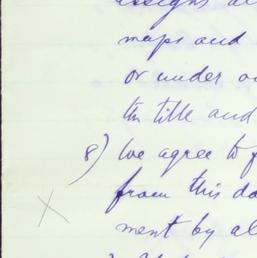 assigns al
maps and
or under ou
the title and
8) We agree to f
from this da
ment by al